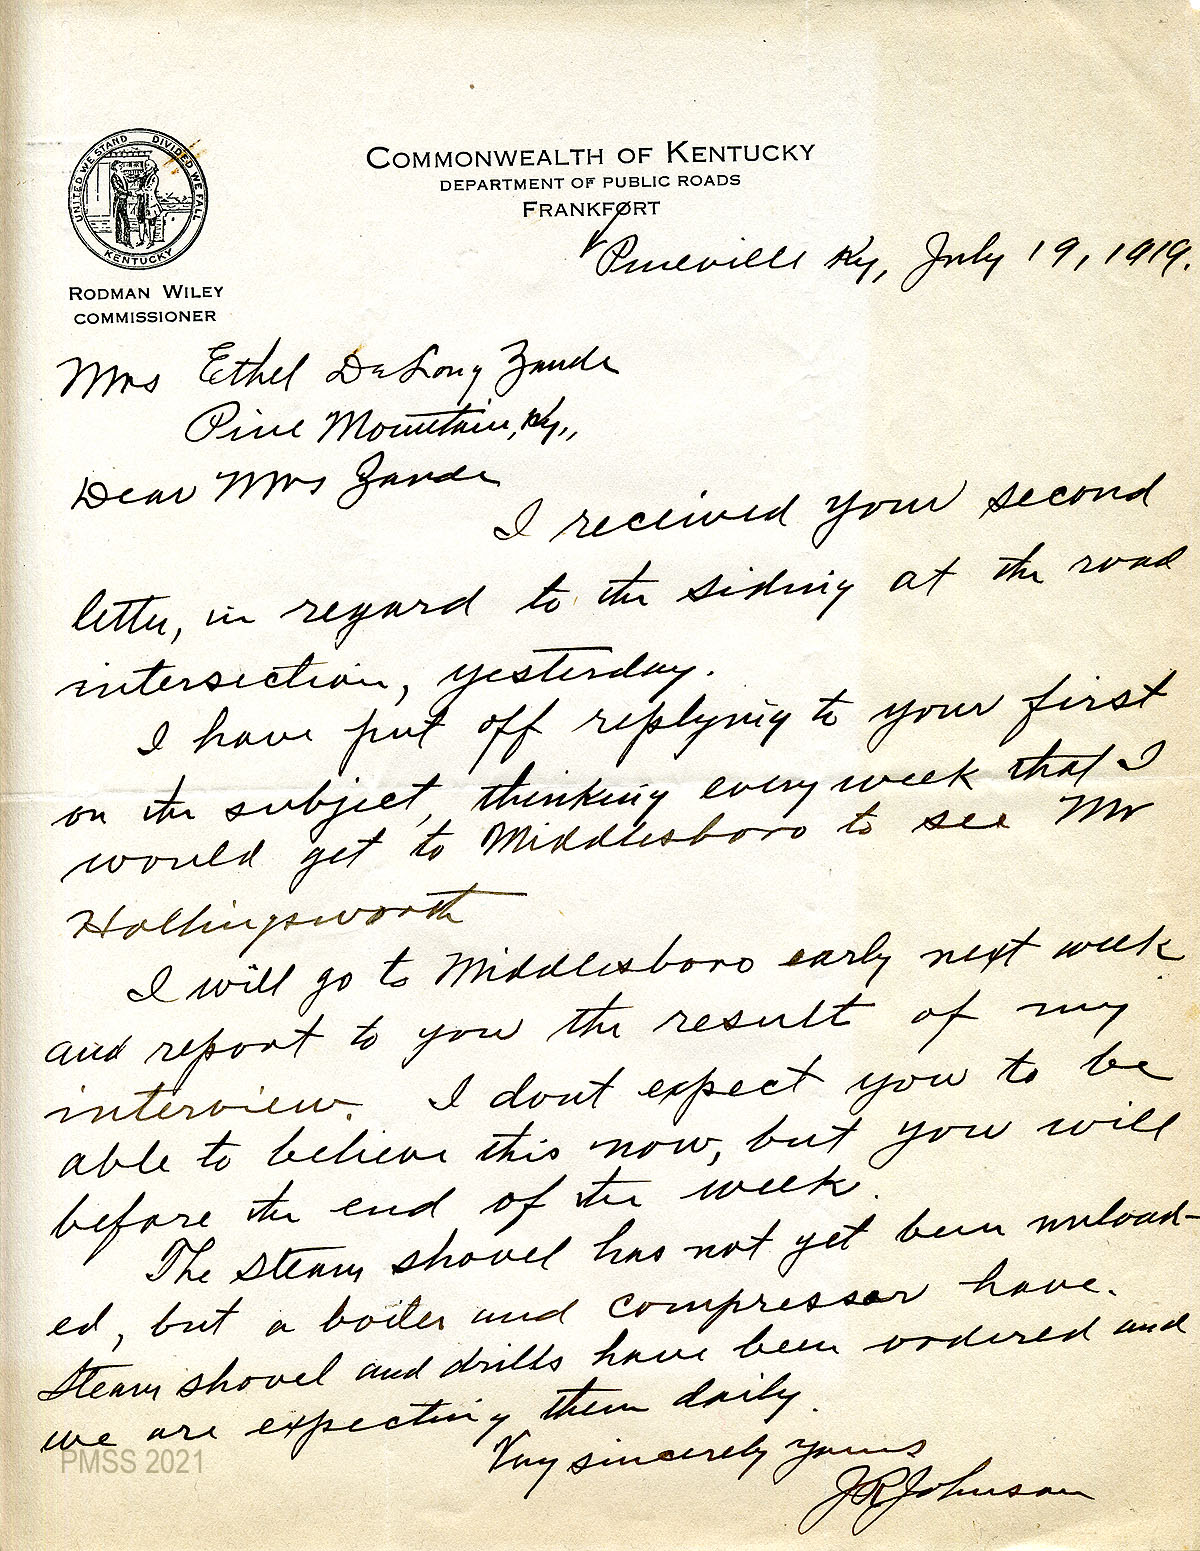 COMMONWEALTH OF KENTUCKY
DEPARTMENT OF PUBLIC ROADS
FRANKFORT
UNITED WE STAND DIVIDED WE FALL
KENTUCKY
RODMAN WILEY
COMMISSIONER
Pineville Ky, July 19, 1919.
Mrs Ethel DeLong Zande
Pine Mountain, Ky.,
Dear Mrs Zande
I received your second
letter, in regard to the siding at the road
intersection, yesterday.
I have put off replying to your first
on the subject, thinking every week that I
would get to Middlesboro to see Mr
Hollingsworth
I will go to Middlesboro early next week
and report to you the result of my
interview. I dont expect you to be
able to believe this now, but you will
before the end of the week.
The steam shovel has not yet been unload-
ed, but a boiler and compressor have.
Steam shovel and drills have been ordered and
we are expecting them daily.
Very sincerely yours
JRJohnson
PMSS 2021